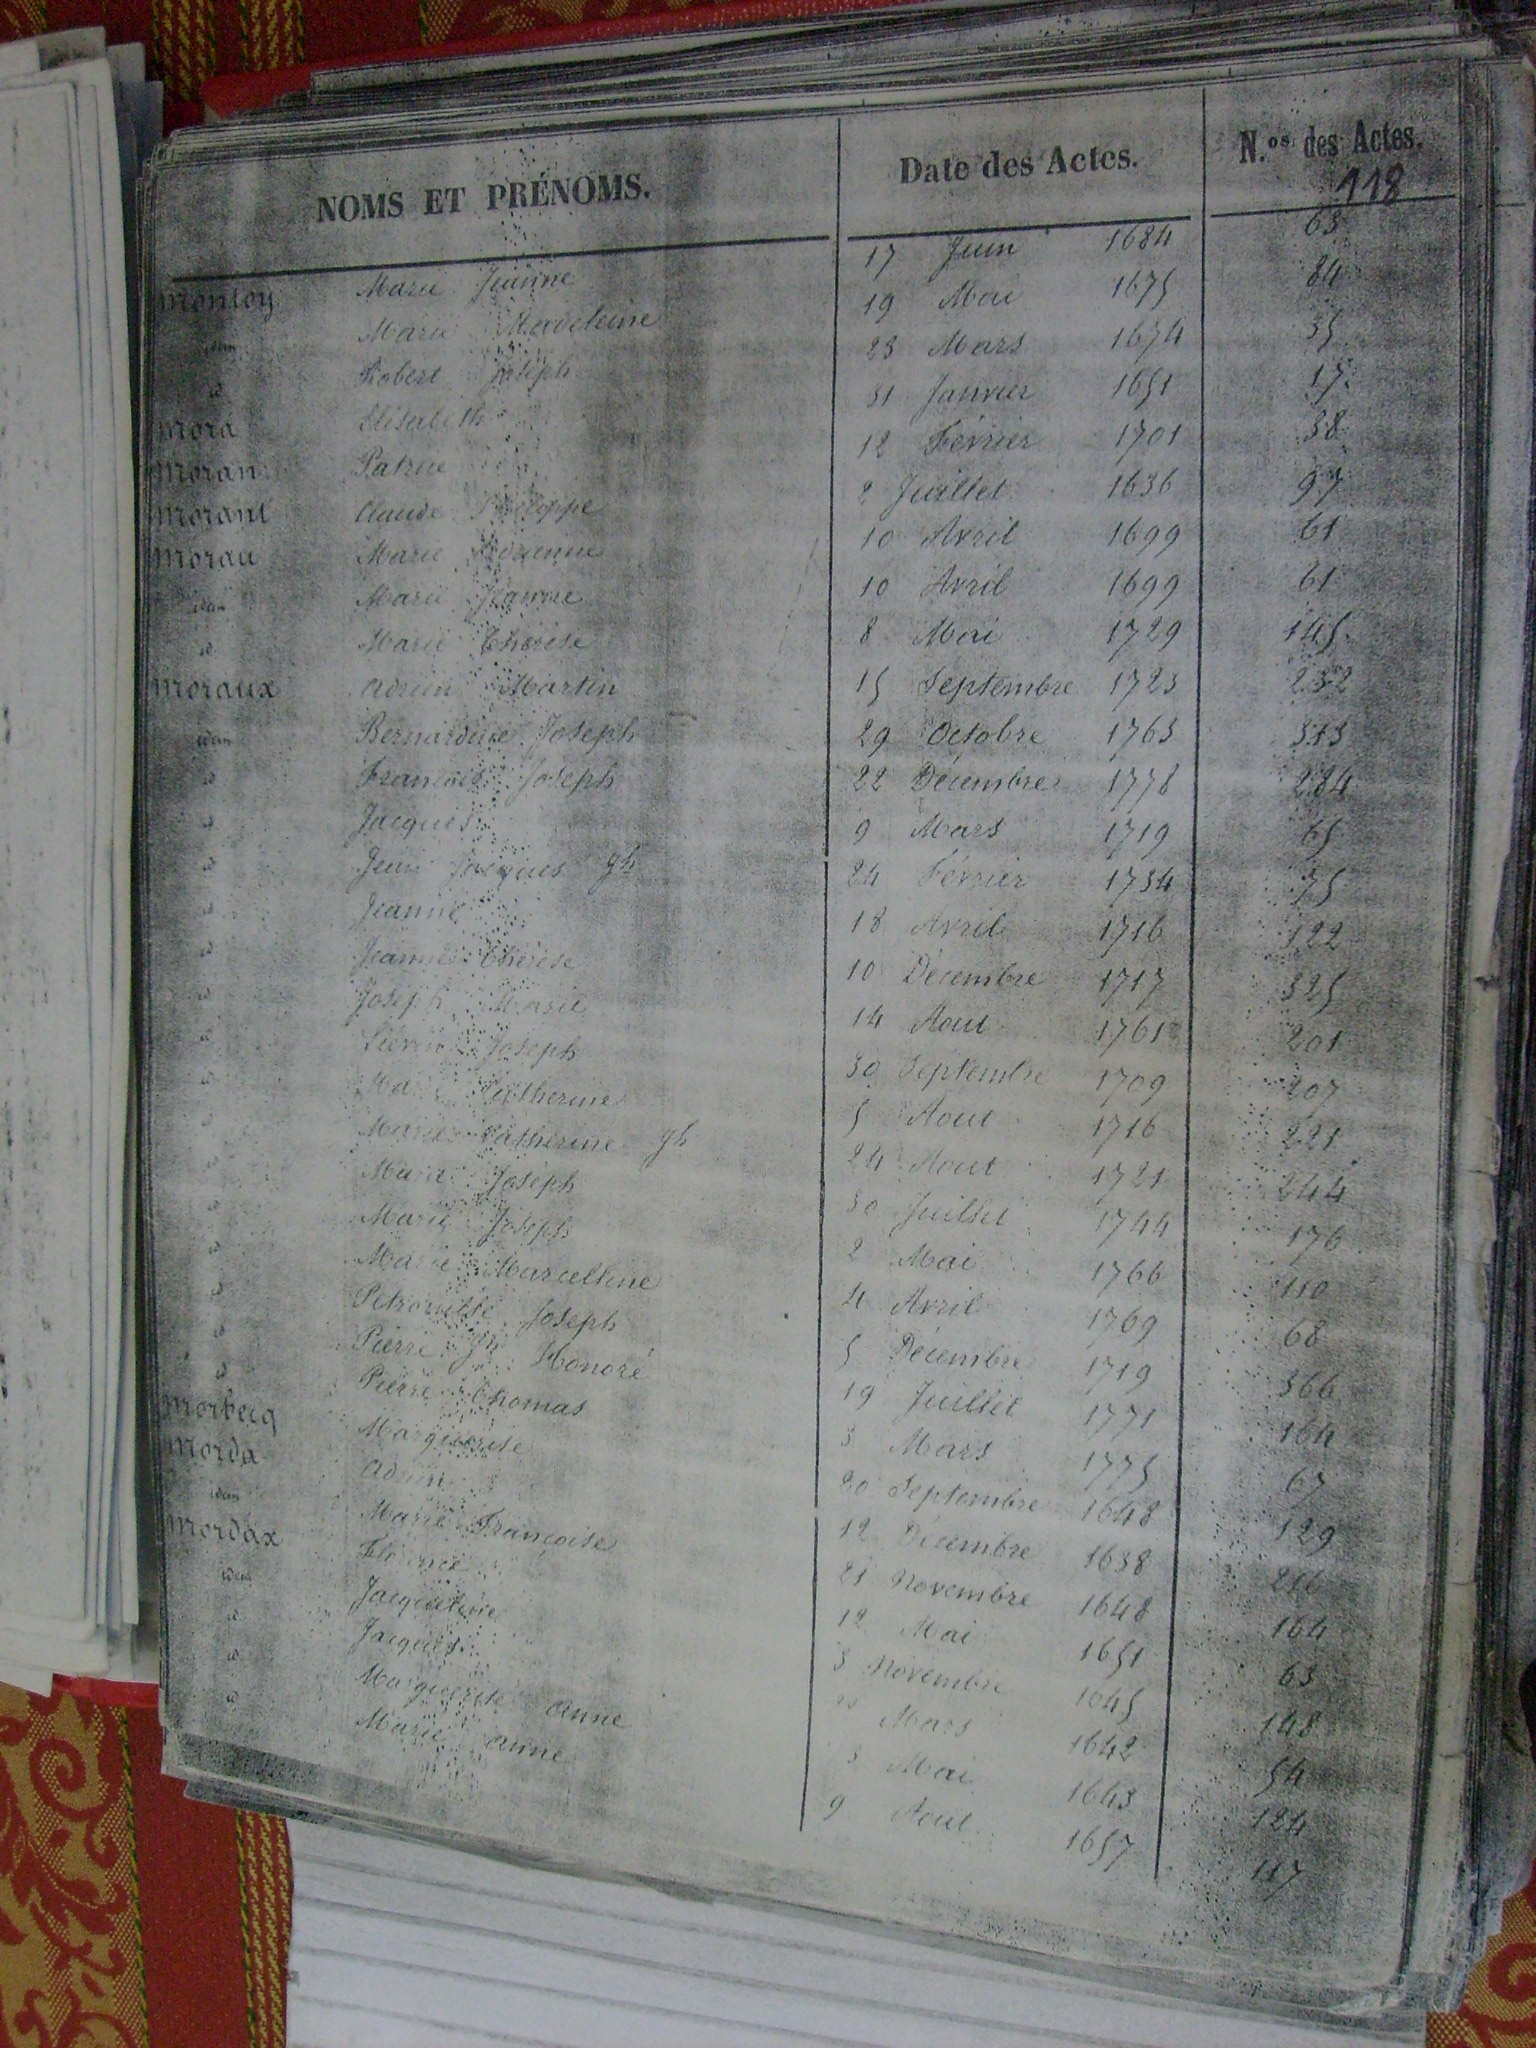 NOMS ET PRÉNOMS. Date des Actes. N.os des Actes.
118
Montoy Marie Jeanne 17 Juin 1684 63
idem Marie Madeleine 19 Mai 1675 84
id Robert Joseph 23 Mars 1674 35
Mora Elisabeth 31 Janvier 1651 17
Moran Patrice 12 Février 1701 38
Morant Claude Philippe 2 Juillet 1636 97
Morau Marie Adrienne 10 Avril 1699 61
idem Marie Jeanne 10 Avril 1699 61
id Marie Therese 8 Mai 1729 145
Moraux Adrien Martin 15 Septembre 1723 232
idem Bernardine Joseph 29 Octobre 1763 313
id François Joseph 22 Décembre 1778 284
id Jacques 9 Mars 1719 65
id Jean Jacques gh 24 Février 1734 75
id Jeanne 18 Avril 1716 122
id Jeanne Therese 10 Décembre 1717 325
id Joseph Marie 14 Aout 1761 201
id Liévin Joseph 30 Septembre 1709 207
id Marie Catherine 5 Aout 1716 221
Marie Catherine gh 24 Aout 1721 244
id Marie Joseph 30 Juillet 1744 176
id Marie Joseph 2 Mai 1766 110
id Marie Marcelline 4 Avril 1769 68
id Petronille Joseph 5 Décembre 1719 366
id Pierre Jh Honoré 19 Juillet 1771 164
id Pierre Thomas 3 Mars 1775 67
Morbecq Marguerite 20 Septembre 1648 129
Morda Adrien 12 Décembre 1638 216
idem Marie Françoise 21 Novembre 1648 164
Mordax Florence 12 Mai 1651 63
idem Jacqueline 3 Novembre 1645 148
id Jacques Mars 1642 54
id Marguerite Anne 3 Mai 1643 124
id Marie Anne 9 Aout 1657 117